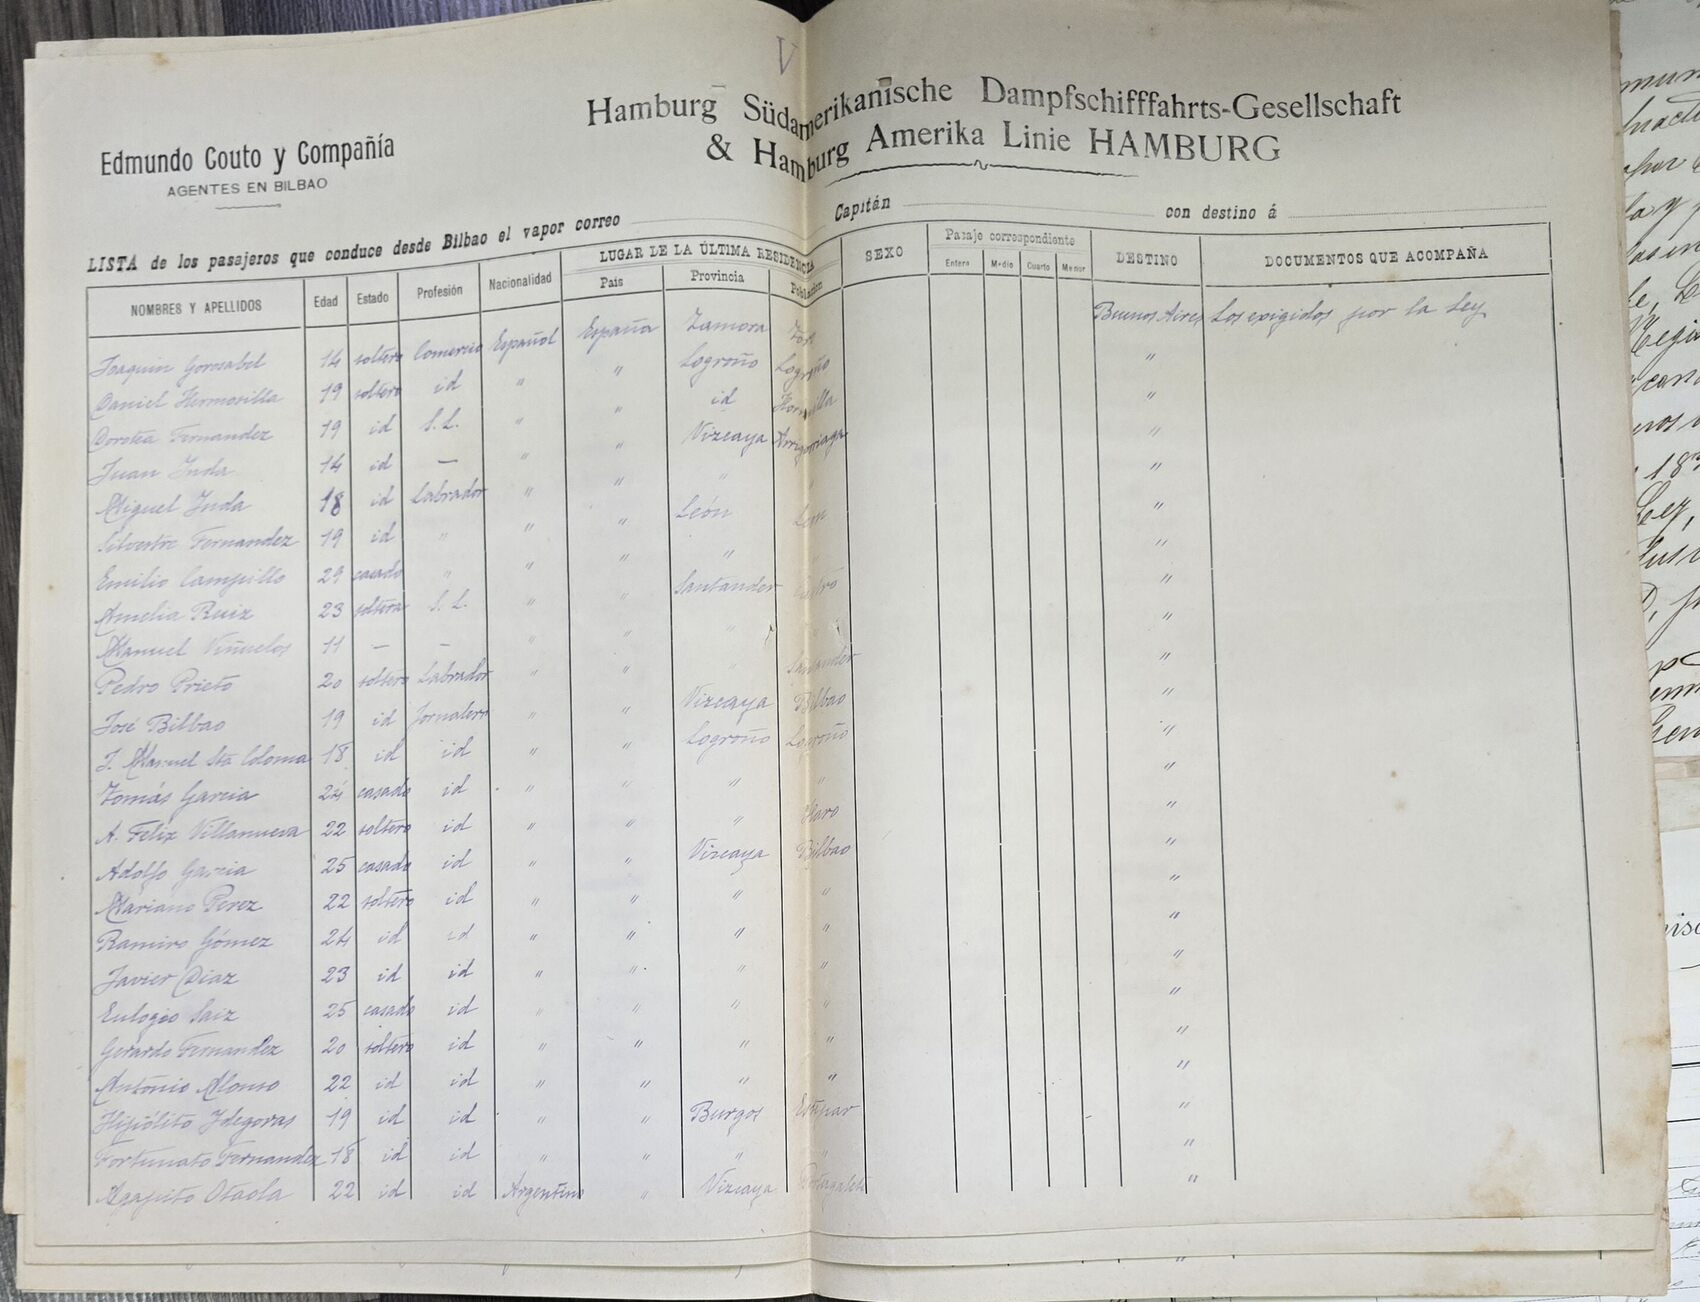 V
Hamburg Südamerikanische Dampfschifffahrts-Gesellschaft
& Hamburg Amerika Linie HAMBURG
Edmundo Couto y Compañía
AGENTES EN BILBAO
LISTA de los pasajeros que conduce desde Bilbao el vapor correo Capitán con destino á
NOMBRES Y APELLIDOS Edad Estado Profesión Nacionalidad LUGAR DE LA ÚLTIMA RESIDENCIA SEXO Pasaje correspondiente DESTINO DOCUMENTOS QUE ACOMPAÑA
País Provincia Población Entero Medio Cuarto Menor
Joaquin Gorosabel 14 soltero Comercio Español España Zamora Buenos Aires Los exigidos por la Ley
Daniel Hermosilla 19 soltero id " " Logroño Logroño "
Dorotea Fernandez 19 id S. L. " " id "
Juan Inda 14 id — " " Vizcaya Arrigorriaga "
Miguel Inda 18 id Labrador " " " " "
Silvestre Fernandez 19 id " " " León León "
Emilio Campillo 29 casado " " " " " "
Amelia Ruiz 23 soltera S. L. " " Santander Castro "
Manuel Viñuelos 11 — — " " " " "
Pedro Prieto 20 soltero Labrador " " " Santander "
José Bilbao 19 id Jornalero " " Vizcaya Bilbao "
J. Manuel Sta Coloma 18 id id " " Logroño Logroño "
Tomás Garcia 24 casado id " " " " "
A. Felix Villanueva 22 soltero id " " " Haro "
Adolfo Garcia 25 casado id " " Vizcaya Bilbao "
Mariano Perez 22 soltero id " " " " "
Ramiro Gómez 24 id id " " " " "
Javier Diaz 23 id id " " " " "
Eulogio Saiz 25 casado id " " " " "
Gerardo Fernandez 20 soltero id " " " " "
Antonio Alonso 22 id id " " " " "
Hipólito Ydegoras 19 id id " " Burgos "
Fortunato Fernandez 18 id id " " " " "
Agapito Otaola 22 id id Argentino " Vizcaya Portugalete "